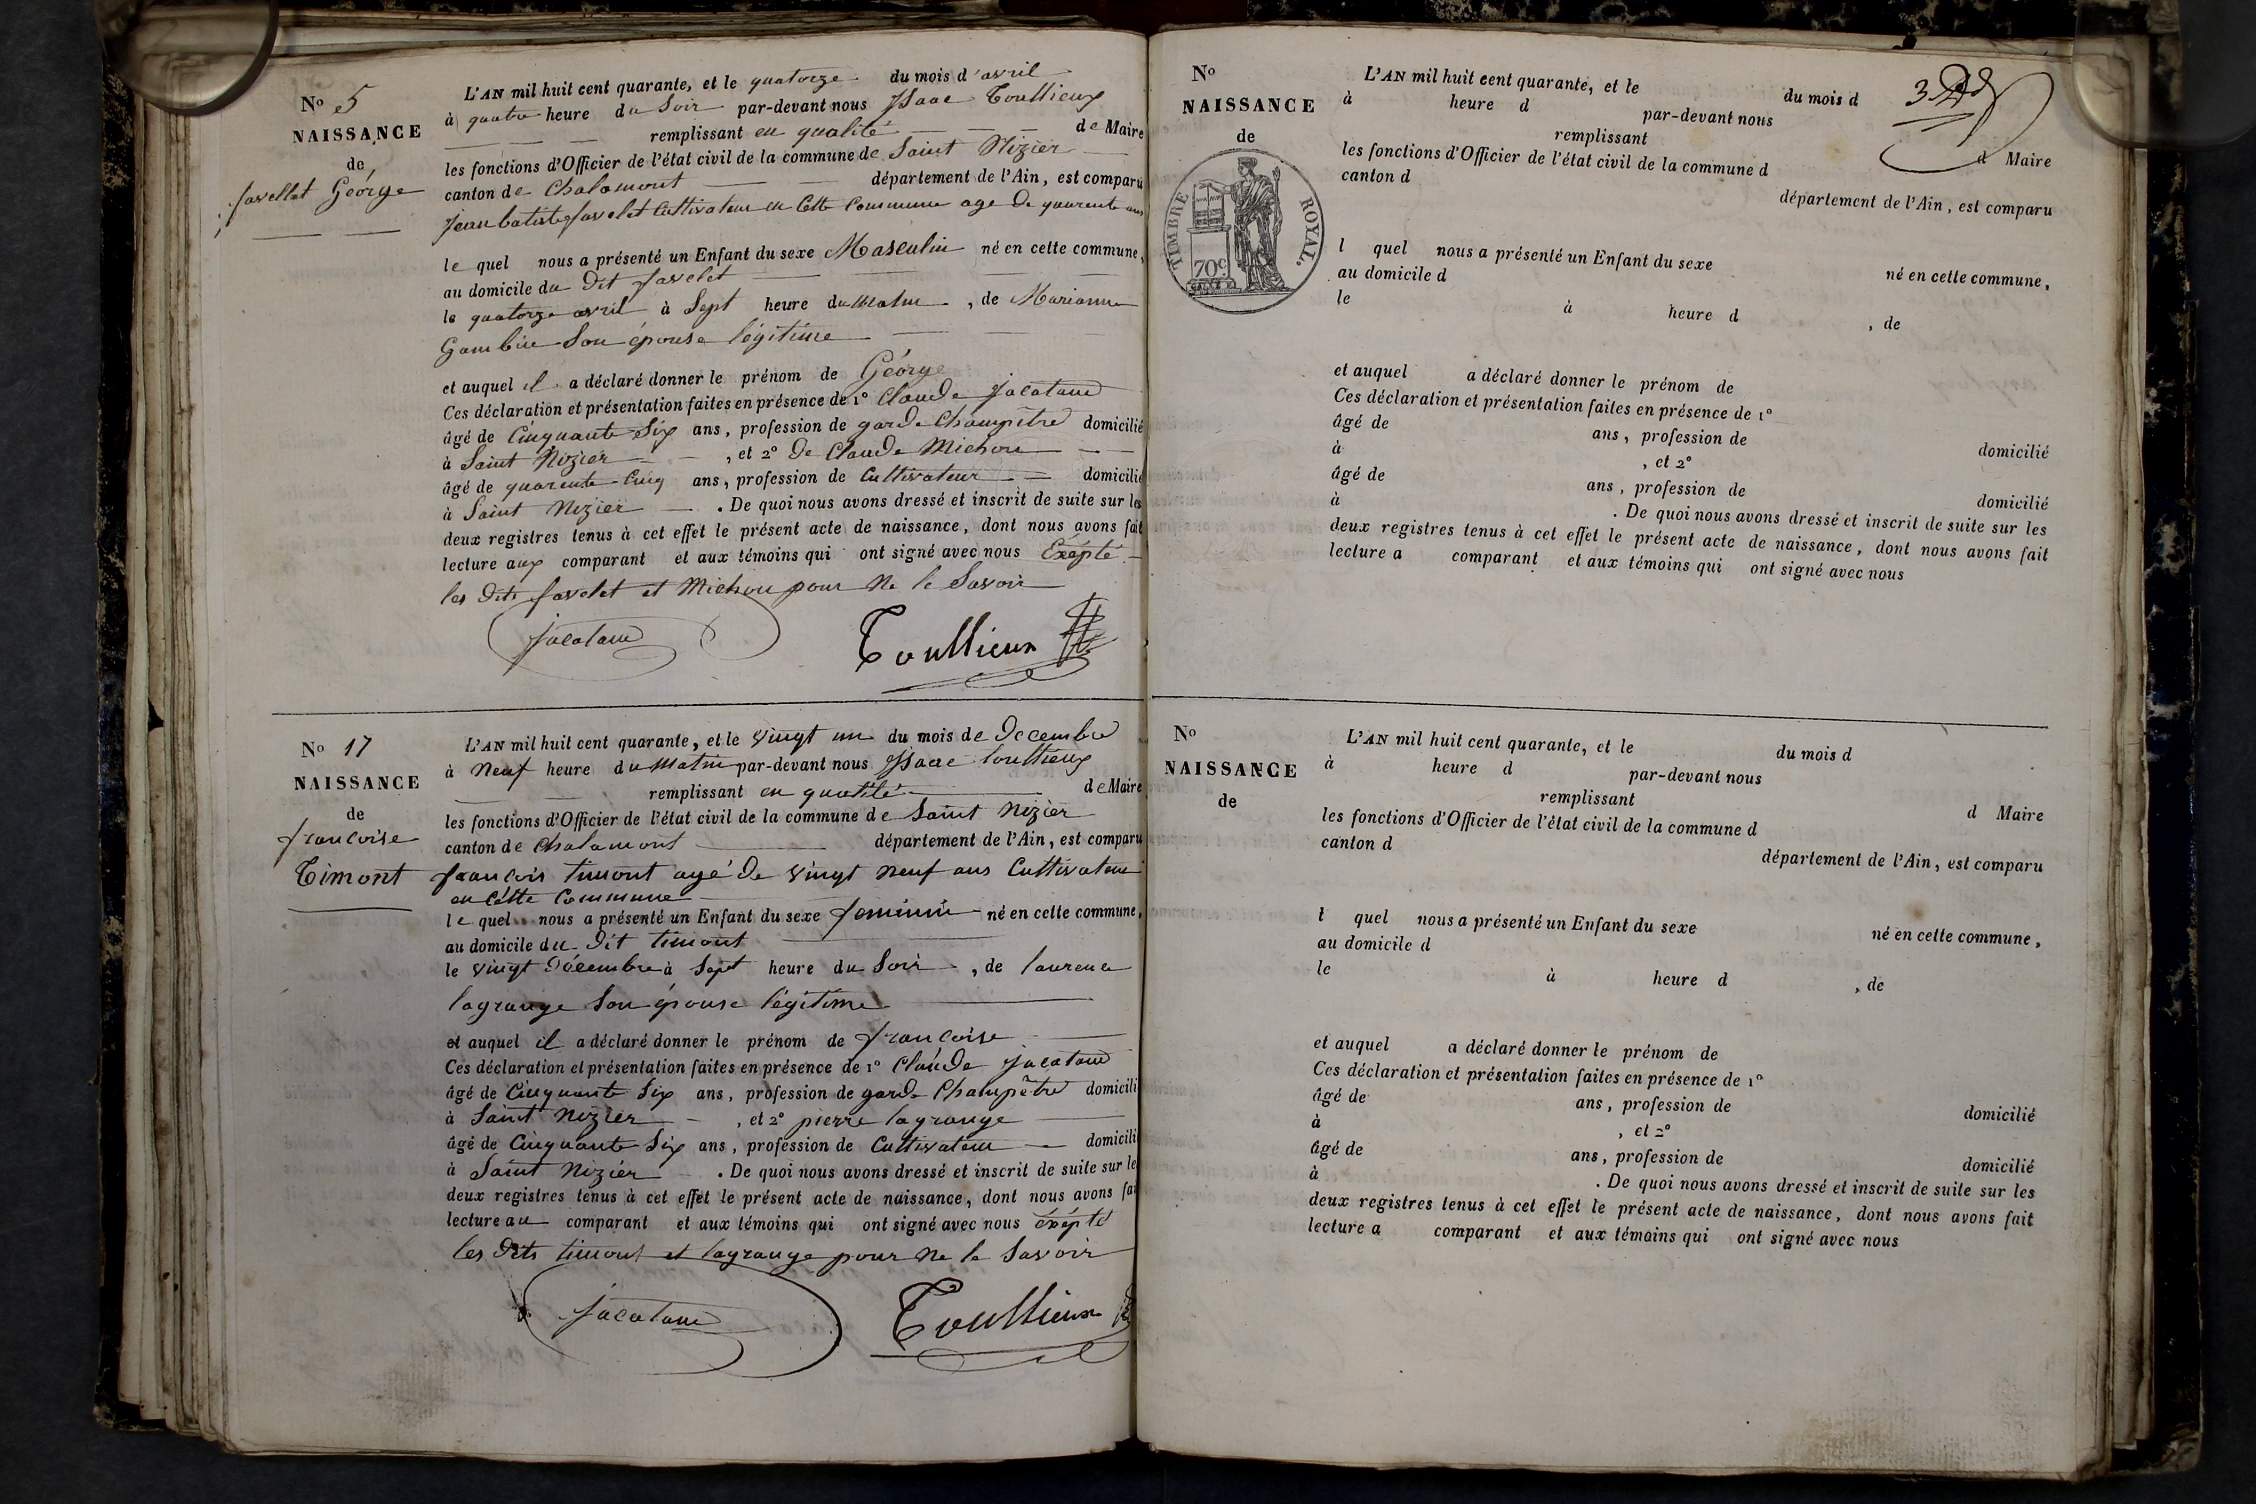 Nº 5
NAISSANCE
de
favellet George
L'AN mil huit cent quarante, et le quatorze du mois d'avril
à quatre heure du Soir par-devant nous Isaac Toullieux
remplissant en qualité de Maire
les fonctions d'Officier de l'état civil de la commune de Saint Nizier
canton de Chalamont département de l'Ain, est comparu
Jean batiste favelet Cultivateur en Cette Commune age De quarente ans
le quel nous a présenté un Enfant du sexe Masculin né en cette commune,
au domicile du Dit favelet
le quatorze avril à Sept heure du Matin, de Marianne
Son épouse légitime
et auquel il a déclaré donner le prénom de Géorge
Ces déclaration et présentation faites en présence de 1º Claude
âgé de Cinquante Six ans, profession de garde Champêtre domicilié
à Saint Nizier, et 2º De Claude Michon
âgé de quarente Cinq ans, profession de Cultivateur domicilié
à Saint Nizier. De quoi nous avons dressé et inscrit de suite sur les
deux registres tenus à cet effet le présent acte de naissance, dont nous avons fait
lecture aux comparant et aux témoins qui ont signé avec nous Exépté
les Dits favelet et Michon pour Ne le Savoir
Toullieux
Nº 17
NAISSANCE
de
francoise
Timont
L'AN mil huit cent quarante, et le vingt un du mois de Decembre
à Neuf heure du Matin par-devant nous Isaac Toullieux
remplissant en qualité de Maire
les fonctions d'Officier de l'état civil de la commune de Saint Nizier
canton de Chalamont département de l'Ain, est comparu
francois timont agé De vingt neuf ans Cultivateur
en Cétte Commune
le quel nous a présenté un Enfant du sexe feminin né en cette commune,
au domicile du Dit timont
le vingt Décembre à Sept heure du Soir, de laurence
lagrange Son épouse légitime
et auquel il a déclaré donner le prénom de francoise
Ces déclaration et présentation faites en présence de 1º Claude
âgé de Cinquante Six ans, profession de garde Champêtre domicili
à Saint Nizier, et 2º pierre lagrange
âgé de Cinquante Six ans, profession de Cultivateur domicili
à Saint Nizier. De quoi nous avons dressé et inscrit de suite sur le
deux registres tenus à cet effet le présent acte de naissance, dont nous avons fai
lecture au comparant et aux témoins qui ont signé avec nous éxépté
les Dits timont et lagrange pour Ne le Savoir
Toullieux
Nº
NAISSANCE
de
TIMBRE ROYAL.
70c
L'AN mil huit cent quarante, et le du mois d
à heure d par-devant nous
remplissant d Maire
les fonctions d'Officier de l'état civil de la commune d
canton d département de l'Ain, est comparu
l quel nous a présenté un Enfant du sexe né en cette commune,
au domicile d
le à heure d , de
et auquel a déclaré donner le prénom de
Ces déclaration et présentation faites en présence de 1º
âgé de ans, profession de domicilié
à , et 2º
âgé de ans, profession de domicilié
à . De quoi nous avons dressé et inscrit de suite sur les
deux registres tenus à cet effet le présent acte de naissance, dont nous avons fait
lecture a comparant et aux témoins qui ont signé avec nous
Nº
NAISSANCE
de
L'AN mil huit cent quarante, et le du mois d
à heure d par-devant nous
remplissant d Maire
les fonctions d'Officier de l'état civil de la commune d
canton d département de l'Ain, est comparu
l quel nous a présenté un Enfant du sexe né en cette commune,
au domicile d
le à heure d , de
et auquel a déclaré donner le prénom de
Ces déclaration et présentation faites en présence de 1º
âgé de ans, profession de domicilié
à , et 2º
âgé de ans, profession de domicilié
à . De quoi nous avons dressé et inscrit de suite sur les
deux registres tenus à cet effet le présent acte de naissance, dont nous avons fait
lecture a comparant et aux témoins qui ont signé avec nous